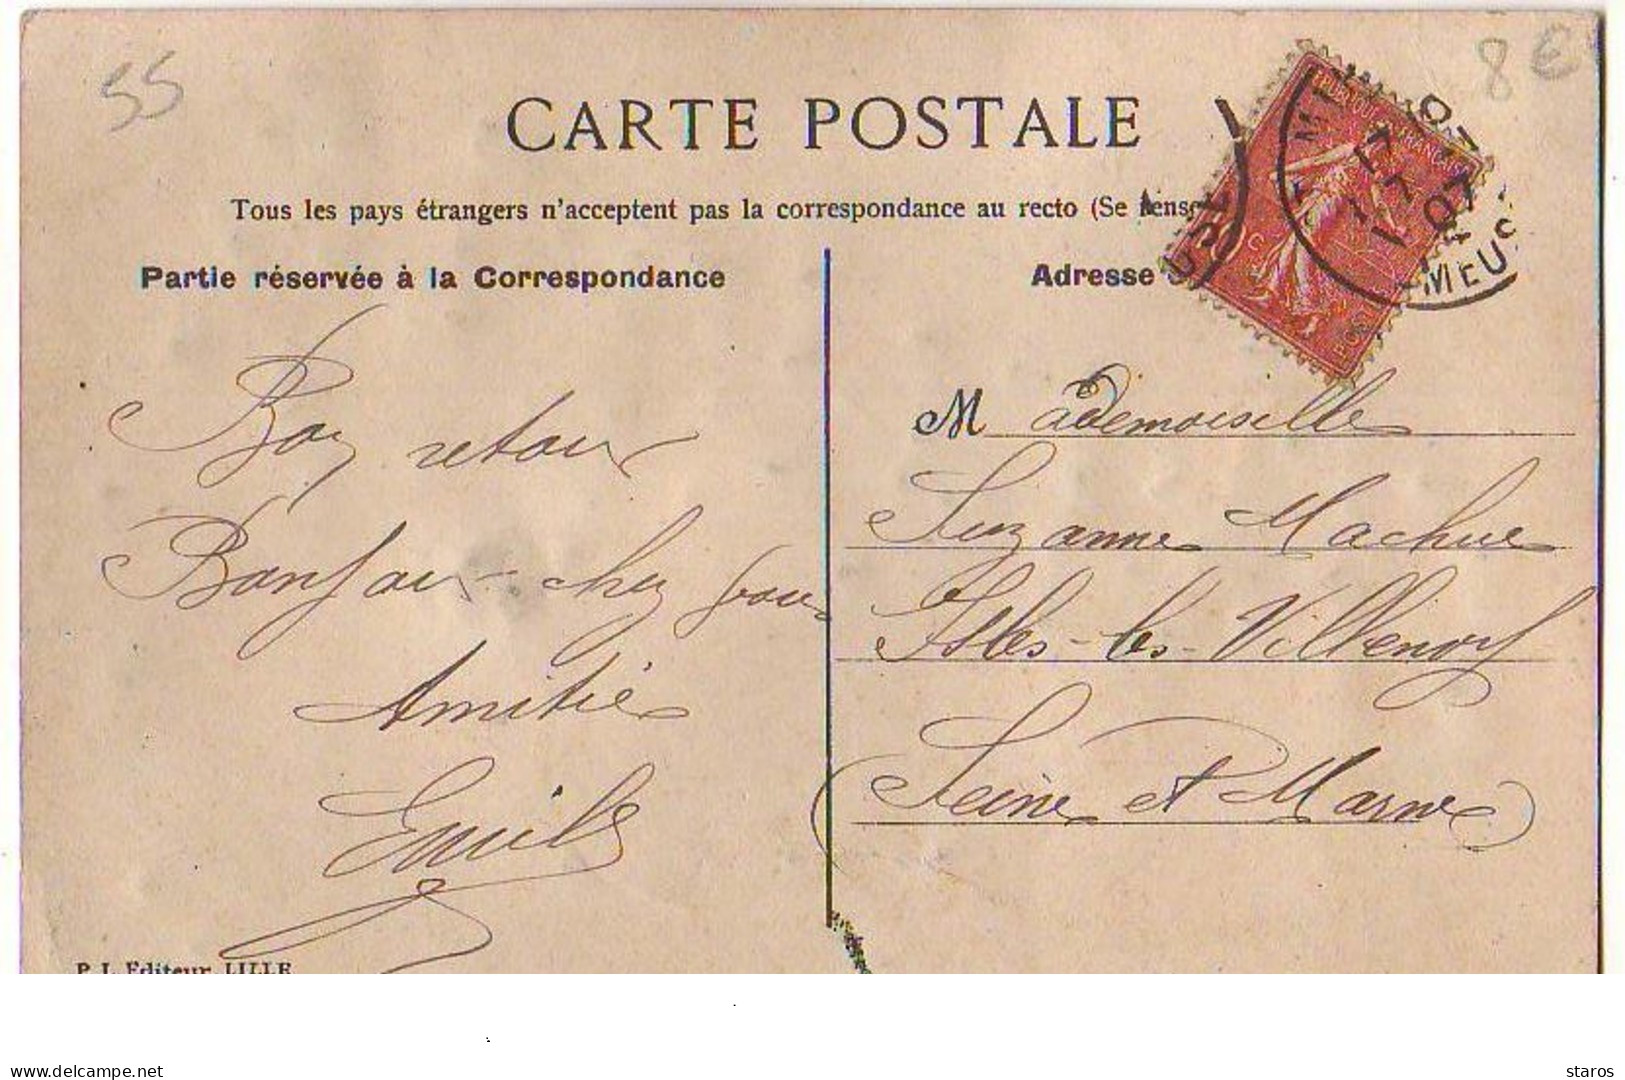 55
8 €
CARTE POSTALE
Tous les pays étrangers n'acceptent pas la correspondance au recto (Se
Partie réservée à la Correspondance
Adresse
17
07
MEUS
Bon retour
Bonjour chez vous
Amitié
Emile
Mademoiselle
Suzanne Machue
Isles-les-Villenoy
(Seine et Marne)
Editeur LILLE
www.delcampe.net
staros